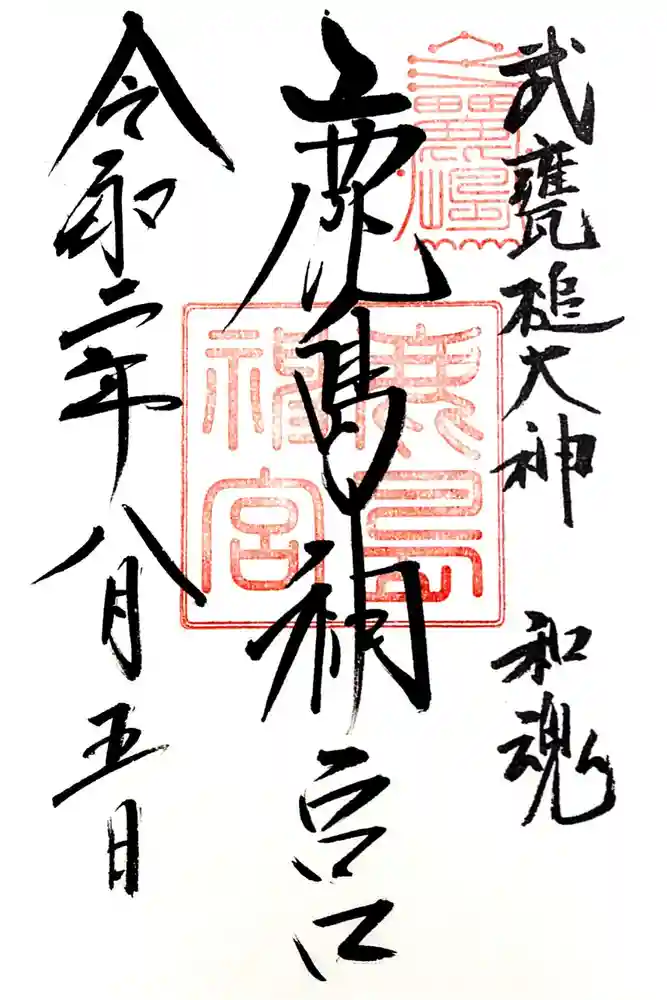 武甕槌大神 和魂
鹿島神宮
令和二年八月五日
鹿島
鹿島神宮